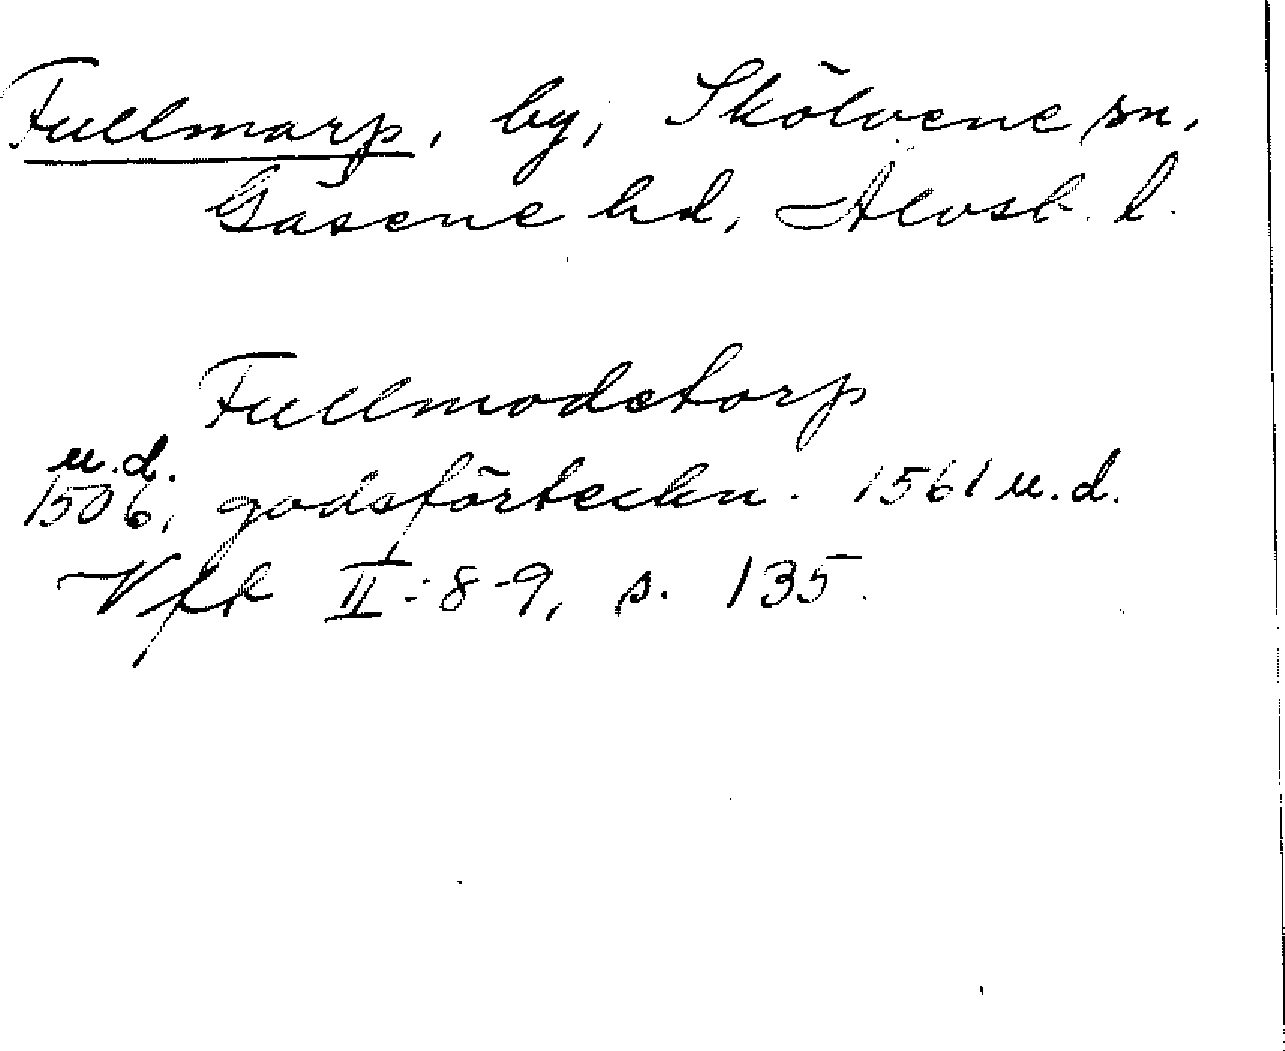 Fullmarp, by, Skölvene sn,
Gäsene hd, Älvsb. l.
Fullmodstorp
u.d.
1506, godsförteckn. 1561 u.d.
Vfr II:8-9, s. 135.